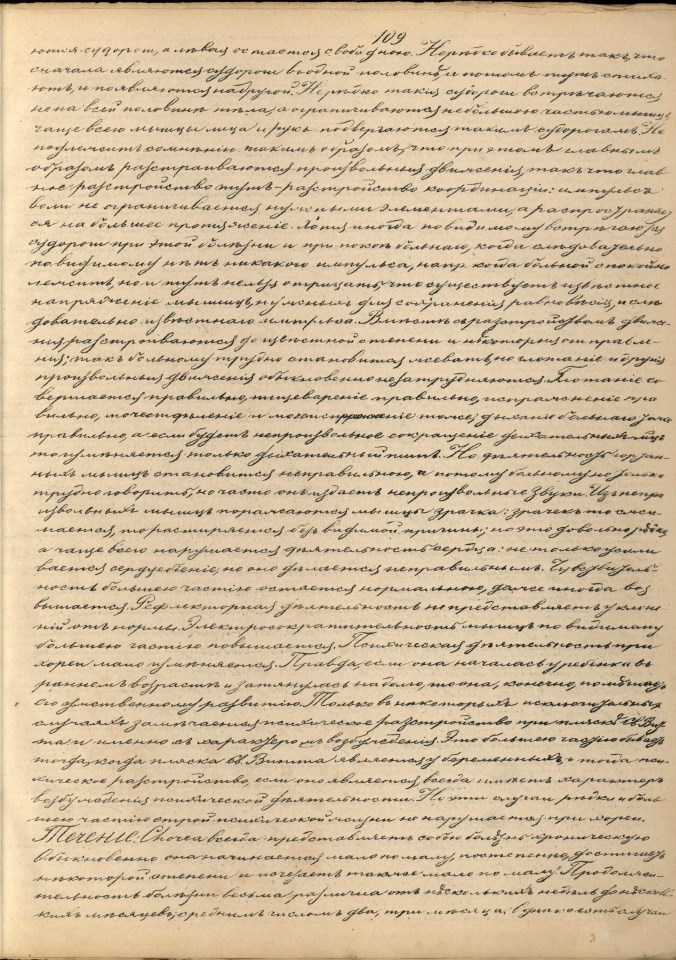 109
ются судороги, а левая остается свободною. Нерѣдко бываетъ такъ, что
сначала являются судороги въ одной половинѣ, а потомъ тутъ стиха-
ютъ, и появляются на другой. Нерѣдко такія судороги встрѣчаются
не на всей половинѣ тѣла, а ограничиваются небольшою частью мышцъ
чаще всего мышцы лица и рукъ подвергаются такимъ судорогамъ. Не
подлежитъ сомнѣнію такимъ образомъ, что при этомъ главнымъ
образомъ разстраиваются произвольныя движенія, такъ что глав
ное разстройство тутъ – разстройство координаціи: импульсъ
воли не ограничивается нужными элементами, а распространяет
ся на большее протяженіе. Хотя иногда повидимому встрѣчаются
судороги при этой болѣзни и при покоѣ больнаго, когда слѣдовательно
повидимому нѣтъ никакого импульса, напр. когда больной спокойно
лежитъ, но и тутъ нельзя отрицать, что существуетъ извѣстное
напряженіе мышцъ, нужныхъ для сохраненія равновѣсія, и слѣ
довательно извѣстнаго импульса. Вмѣстѣ съ разстройствомъ движе-
нія разстроиваются до извѣстной степени и нѣкоторыя отправле-
нія; такъ больному трудно становится жевать, но глотаніе и другія
произвольныя движенія обыкновенно не затрудняются. Глотаніе со
вершается правильно, пищевареніе правильно, испражненіе пра
вильно, мочеотдѣленіе и тоже; дыханіе больнаго
правильно, а если будетъ непроизвольное сокращеніе дыхательныхъ мышцъ
то измѣняется только дыхательный типъ. Но дѣятельность гортан
ныхъ мышцъ становится неправильною, и потому больному не только
трудно говорить, но часто онъ издаетъ непроизвольные звуки. Изъ непро
извольныхъ мышцъ поражаются мышцы зрачка: зрачекъ то сжи-
мается, то расширяется безъ видимой причины; но это довольно рѣдко
а чаще всего нарушается дѣятельность сердца: не только усили
вается сердцебіеніе, но оно дѣлается неправильнымъ. Чувствитель-
ность большею частію остается нормальною, даже иногда воз
вышается. Рефлекторная дѣятельность не представляетъ уклоне
ній отъ нормы. Электросократительность мышцъ по видимому
большею частію повышается. Психическая дѣятельность при
хореи мало измѣняется. Правда, если она началась у ребенка въ
раннемъ возрастѣ и затянулась надолго, то она, конечно, помѣшаетъ
его умственному развитію. Только въ нѣкоторыхъ исключительныхъ
случаяхъ замѣчается психическое разстройство при пляскѣ св. Вит
та и именно съ характеромъ возбужденія. Это большею частію бываетъ
тогда, когда пляска св. Витта является у беременныхъ, и тогда пси-
хическое разстройство, если оно является всегда имѣетъ характеръ
возбужденія психической дѣятельности. Но эти случаи рѣдки и боль
шею частію строй психической жизни не нарушается при хореи.
Теченіе: Chorea всегда представляетъ собою болѣзнь хроническую
Обыкновенно она начинается мало по малу, постепенно, достигаетъ
нѣкоторой степени и исчезаетъ также мало по малу. Продолжи-
тельность болѣзни весьма различна отъ нѣсколькихъ недѣль до нѣсколь-
кихъ мѣсяцевъ; среднимъ числомъ два, три мѣсяца. Однако есть случаи